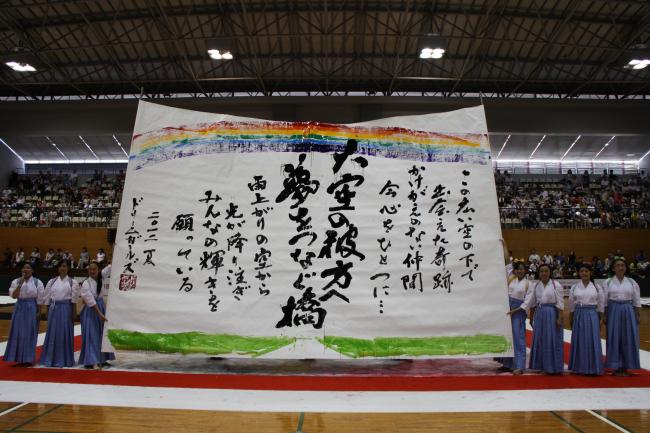 この広い空の下で
出会えた奇跡
かけがえのない仲間
今心をひとつに…
大空の彼方へ
夢をつなぐ橋
雨上がりの空から
光が降り注ぎ
みんなの輝きを
願っている
二〇一一夏
ドリームガールズ